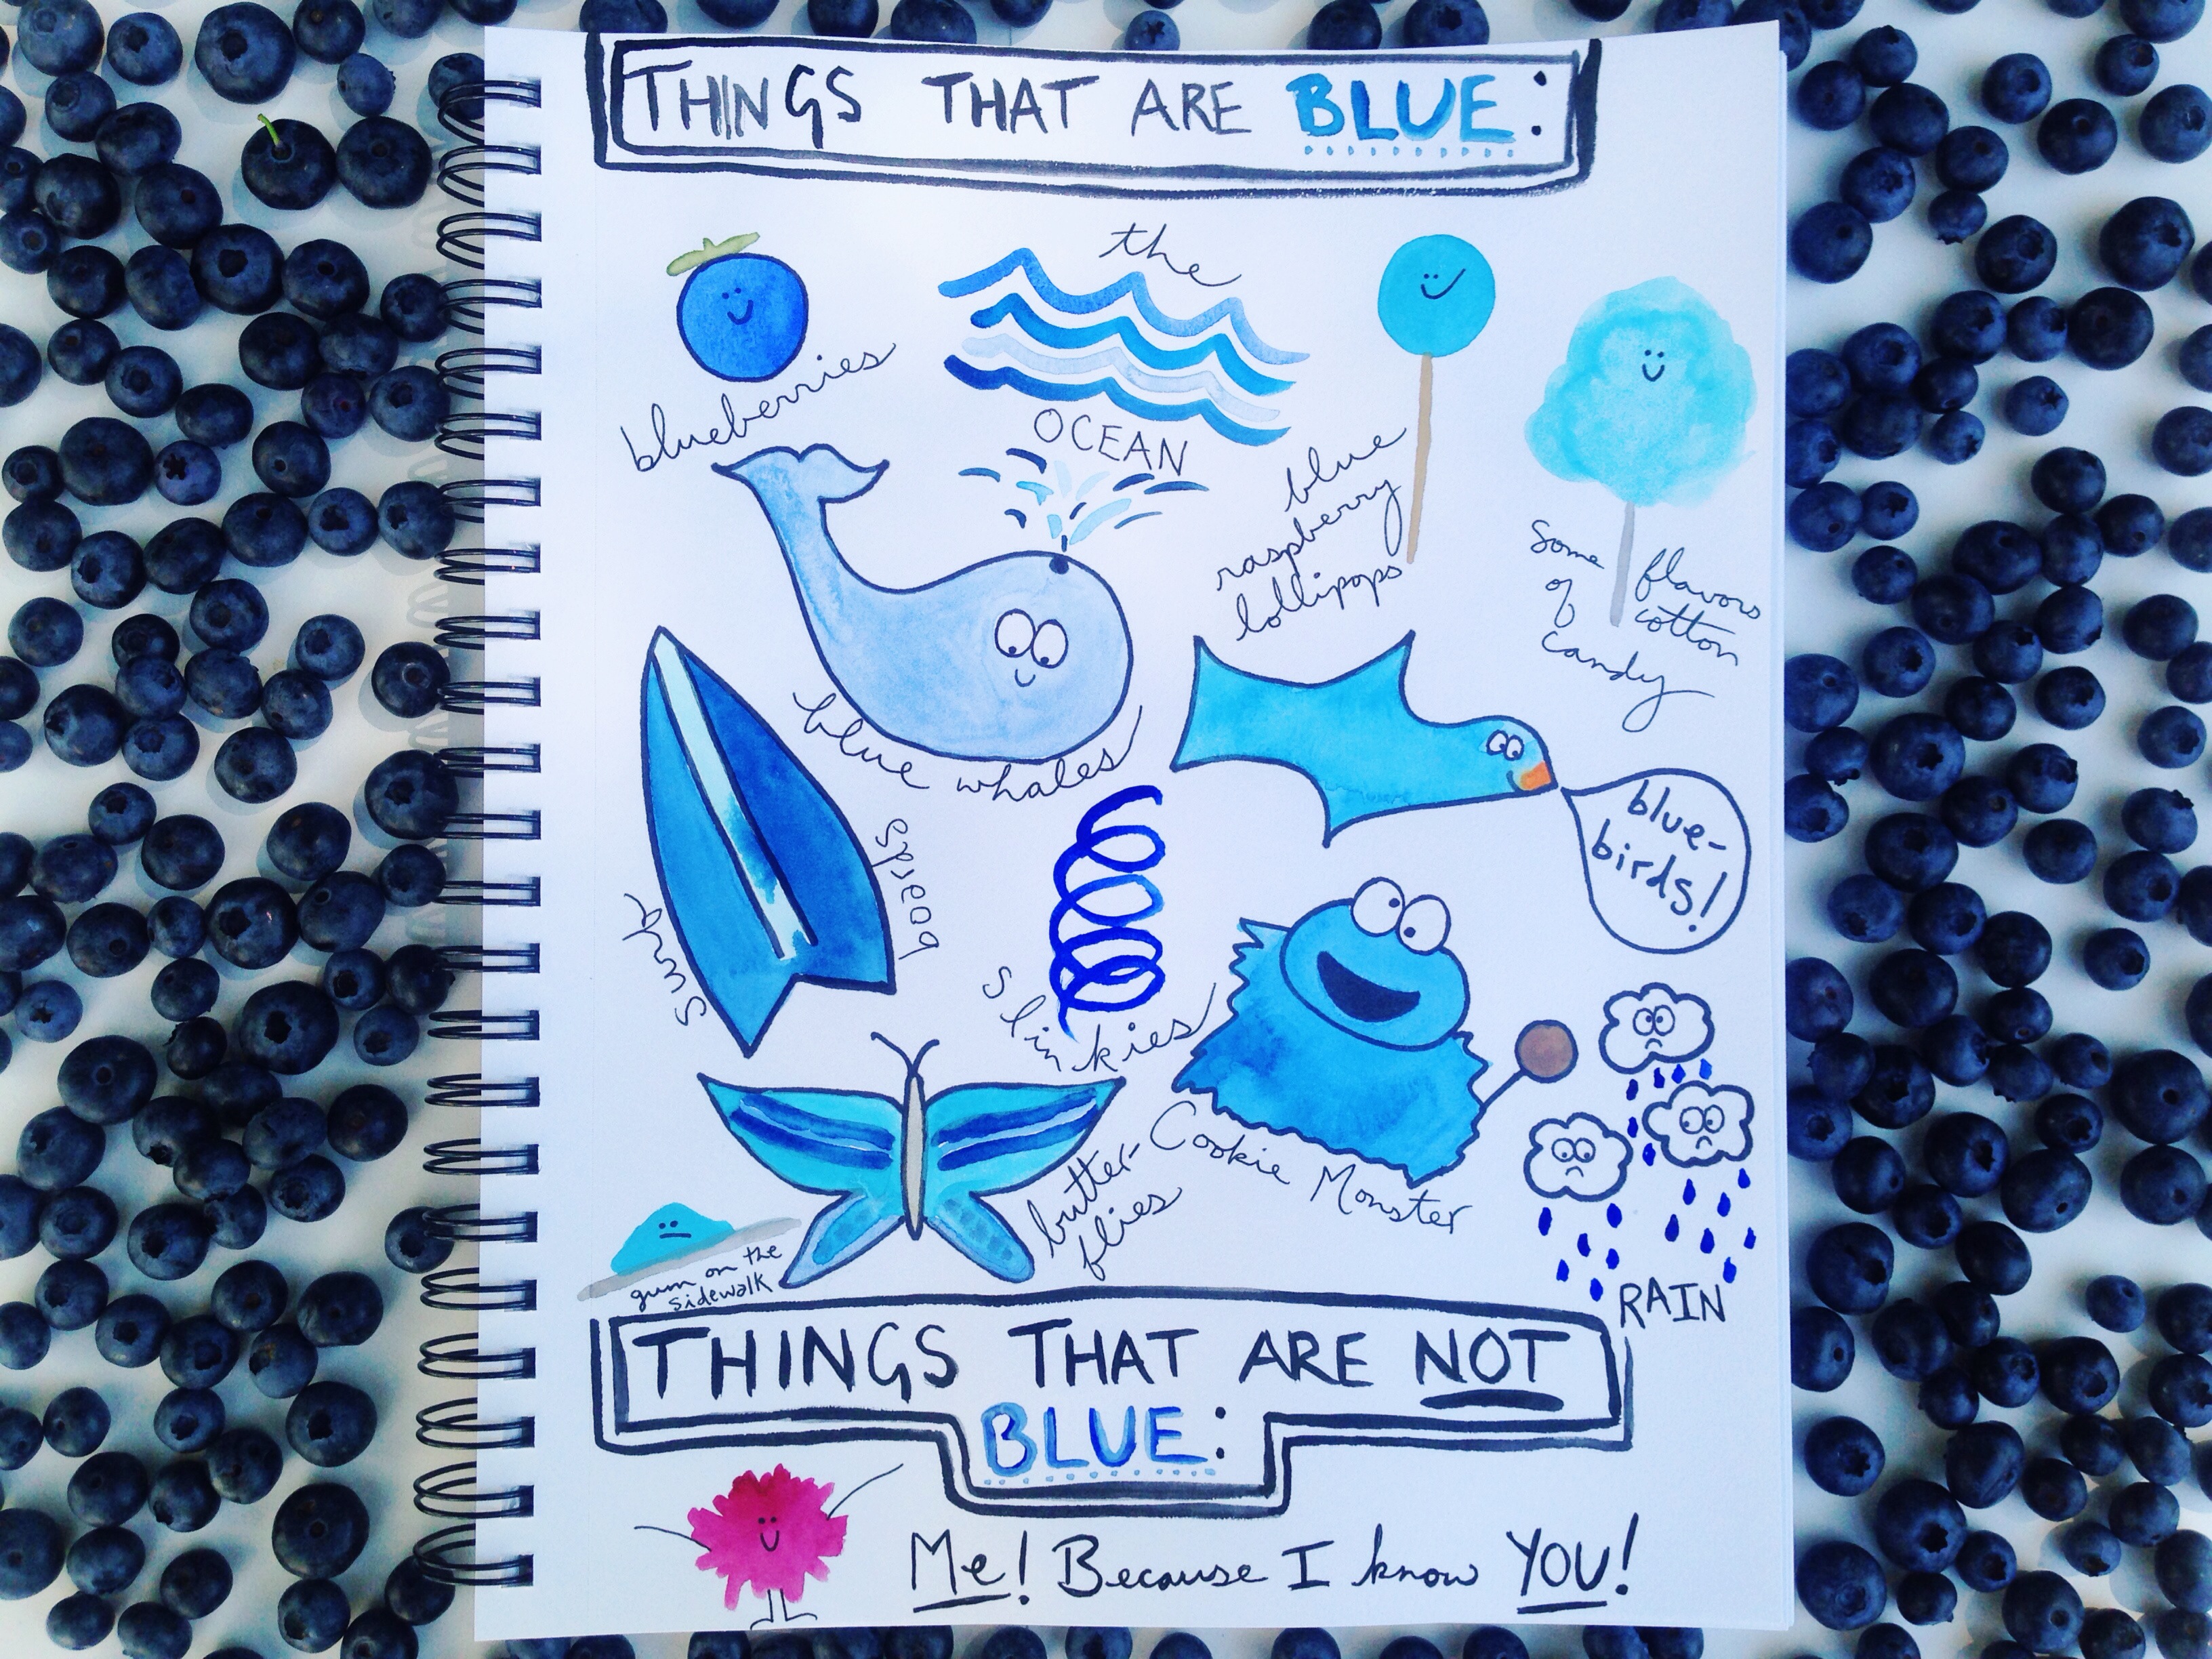 THINGS THAT ARE BLUE:
blueberries
the
OCEAN
blue
raspberry
lollipops
Some flavors
of cotton
candy
blue whales
blue-
birds!
surf boards
slinkies
Cookie Monster
butter-
flies
gum on the
sidewalk
RAIN
THINGS THAT ARE NOT
BLUE:
Me! Because I know YOU!